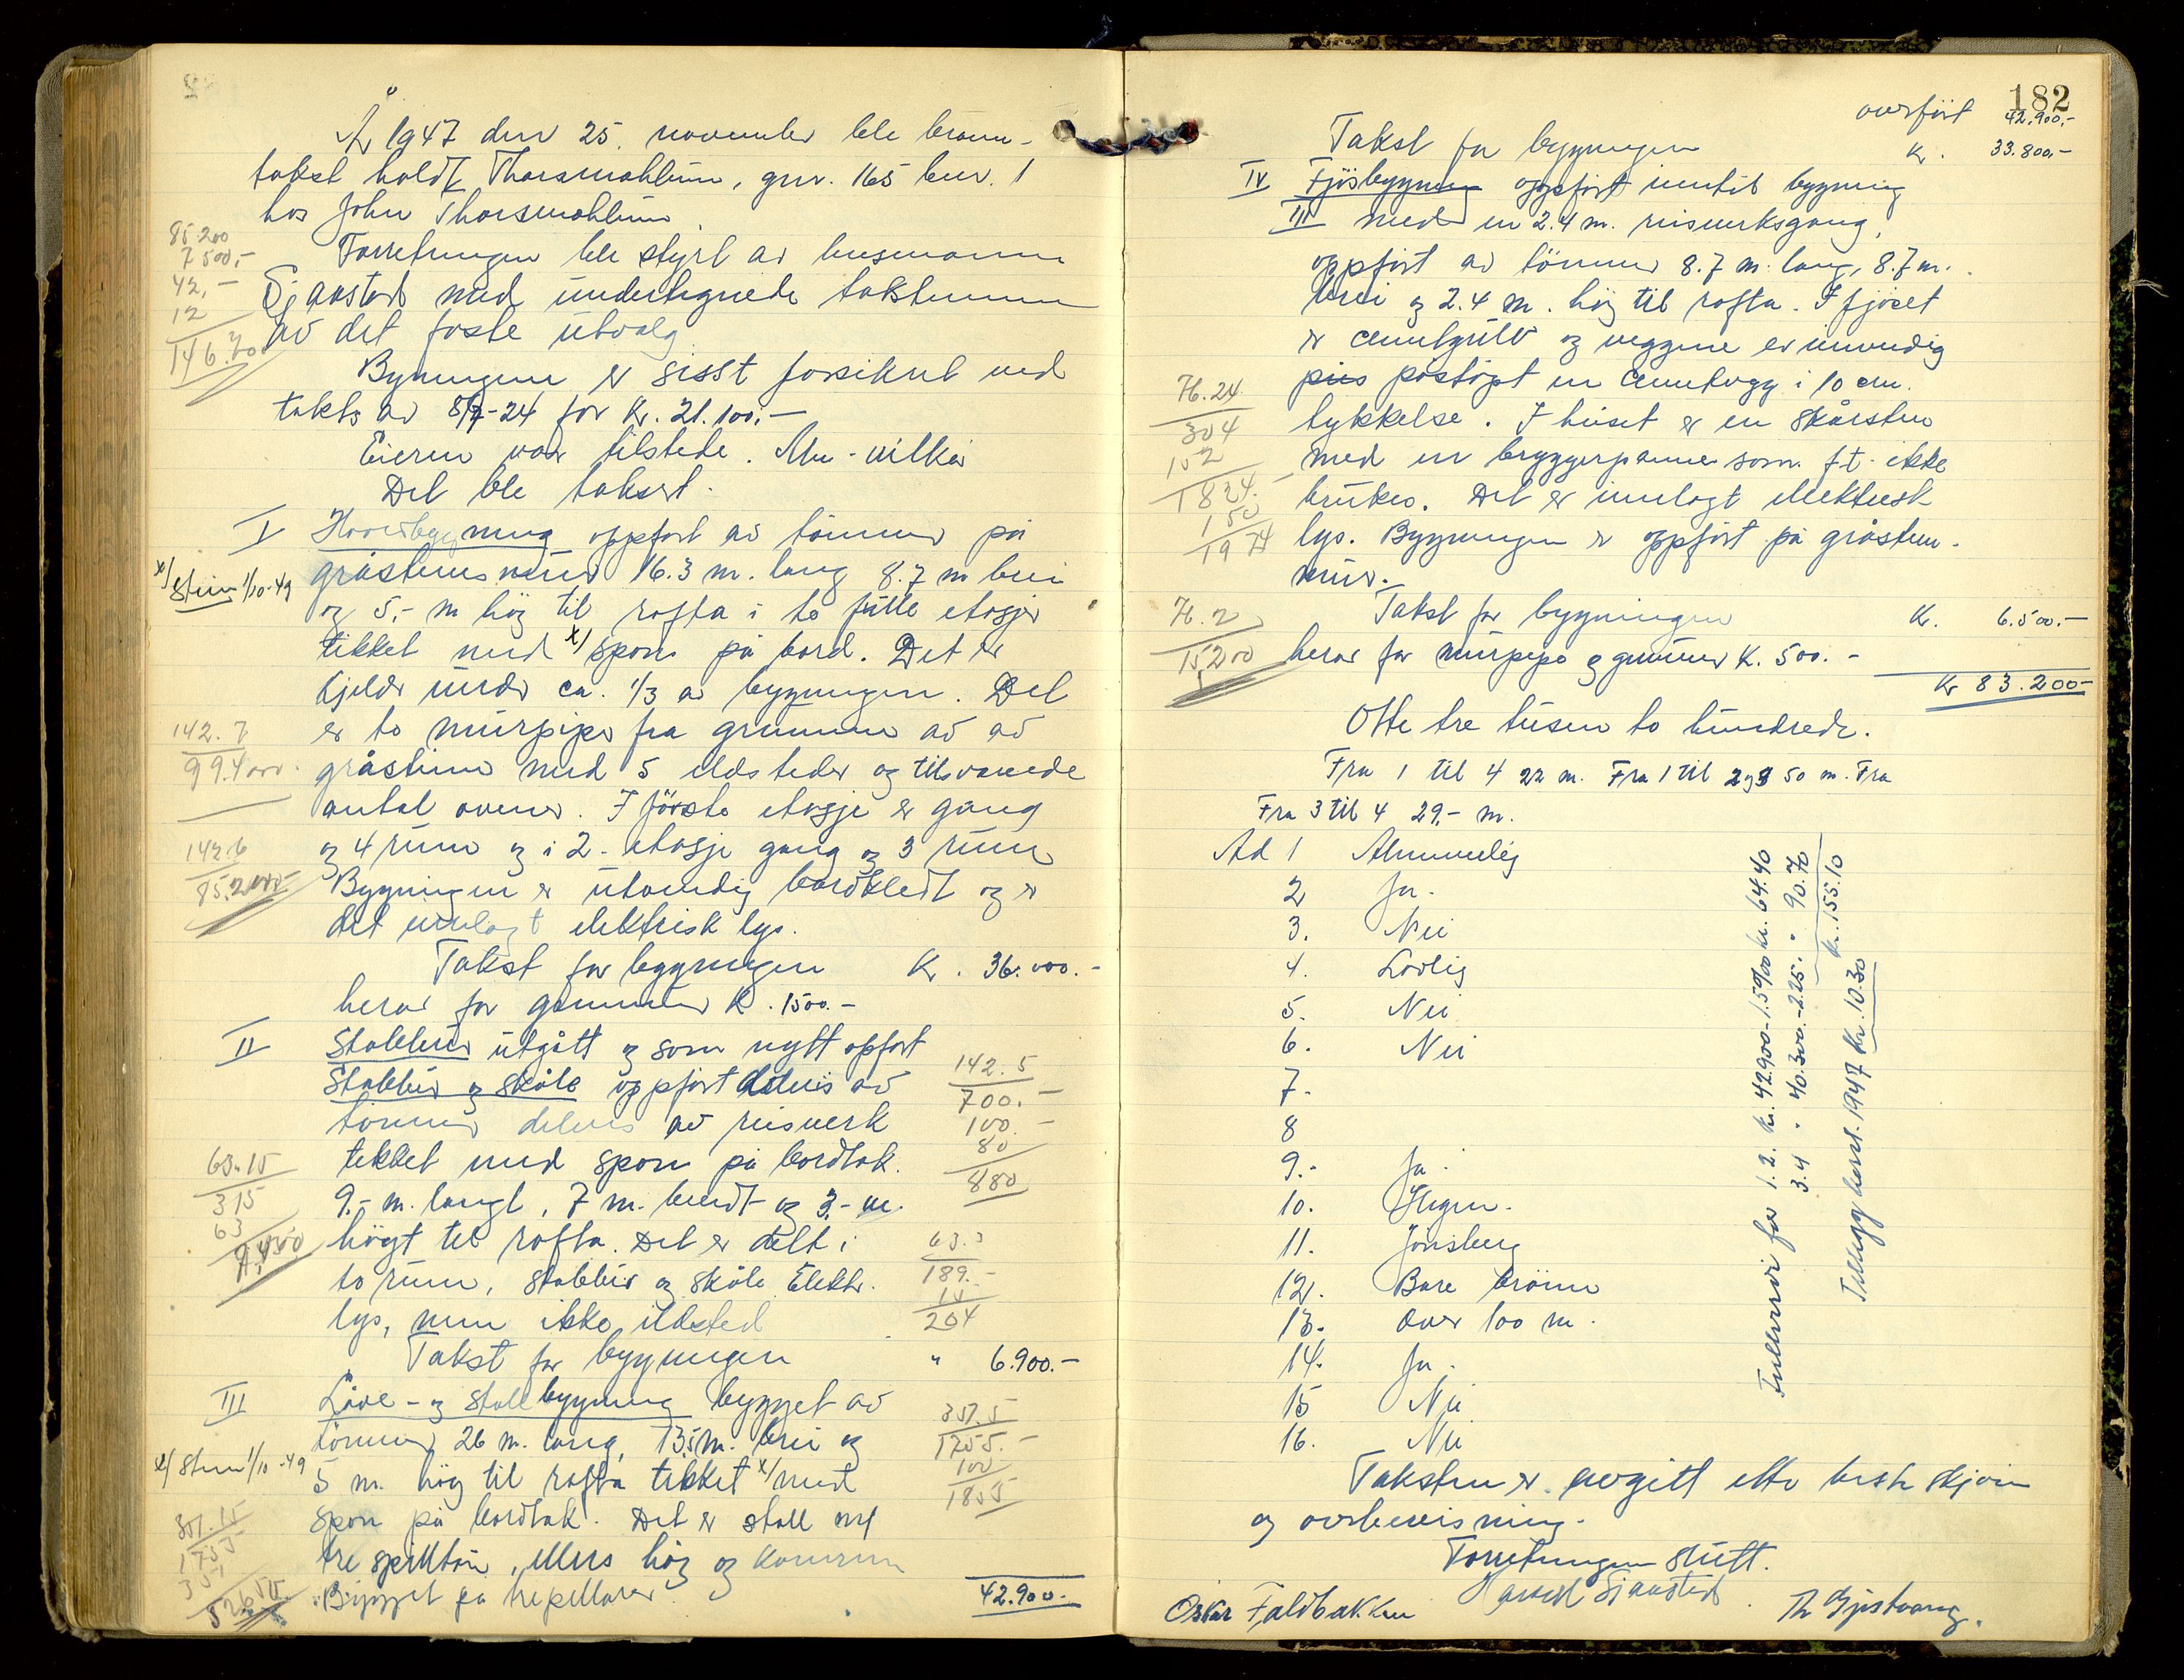 År 1947 den 25. november ble brann-
takst holdt Thorsmohlum, gnr. 165 bnr. 1
hos John Thorsmohlum
85.200
7 500,-
42,-
12
146.70
Forretningen ble styrt av
Sjaastad med undertegnede
av det faste utvalg
Bygningene er sisst forsikret ved
takts av 8/7-24 for Kr. 21.100.-
Eieren var tilstede. Alm-vilkår
Det ble taksert.
I Hovedbygning oppført av tømmer på
x/ Stein 1/10-49
gråsteinsmur 16.3 m. lang 8.7 m brei
og 5,- m høg til rafta i to fulle etasjer
tekket med x/ spon på bord. Det er
kjeller under ca. 1/3 av bygningen. Det
142.7
99.400.
er to murpiper fra grunnen av av
gråstein med 5 ildsteder og tilsvarende
antal ovner. I første etasje er gang
142.6
85.200
og 4 rum og i 2. etasje gang og 3 rum
Bygningen er utvendig bordkledt og er
det innlagt elektrisk lys.
Takst for bygningen Kr. 36.000.-
herav for grunnmur K. 1500.-
II Stabbur utgått og som nytt opført
Stabbur og skåle oppført delvis av
142.5
700.-
100.-
80
880
tømmer delvis av reisverk
tekket med spon på bordtak.
63.15
315
63
9.450
9.- m. langt, 7 m. breidt og 3.- m.
høgt til rafta. Det er delt i
63.3
189.-
15
204
to rum, stabbur og skåle. Elektr.
lys, men ikke ildsted
Takst for bygningen " 6.900.-
III Låve- og stallbygning bygget av
tømmer, 26 m. lang, 13,5 m. brei og
351.5
1755.-
100
1855
x/ Stein 1/10-49
5 m. høg til rafta tekket x/ med
351.15
1755
351
52650
spon på bordtak. Det er stall med
tre spilltau, ellers høg og kornrum
Bygget på trepillarer
42.900.-
182
overført 42.900,-
Takst for bygningen Kr. 33.800,-
IV Fjøsbygning oppført inntil bygning
III med en 2.4 m. reisverksgang,
oppført av tømmer 8.7 m. lang, 8.7 m.
brei og 2.4 m. høg til rafta. I fjøset
er cementgulv og veggene er innvendig
76.24
304
152
1824.-
150
1974
pus påstøpt en cementvegg i 10 cm.
tykkelse. I huset er en skårstein
med en bryggerpanne som f.t. ikke
brukes. Det er innlagt elektrisk
lys. Bygningen er oppført på gråstein-
mur.
76.2
15200
Takst for bygningen Kr. 6.500.-
herav for murpipe og grunnmur K. 500.-
Kr 83.200-
Otte tre tusen to hundrede.
Fra 1 til 4 22 m. Fra 1 til 2 og 3 50 m. Fra
Fra 3 til 4 29.- m.
Ad 1 Almuelig
2 Ja.
3. Nei
4. Lovlig
5. Nei
6. Nei
7.
8
9.- Ja.
10. Ingen.
11. Jønsberg
12. Bare brønn
13. Over 100 m.
14. Ja.
15 Nei
16. Nei
Fullverdi for 1. 2. kr. 42.900-1.5‰ kr. 64.40
3. 4 " 40.300.-2.25. " 90.70
kr. 155.10
Tillegg høst. 1947 kr. 10.30
Taksten er avgitt etter beste skjønn
og overbevisning.
Forretningen slutt.
Sjaastad
Oskar Faldbakken Th Gjestvang.